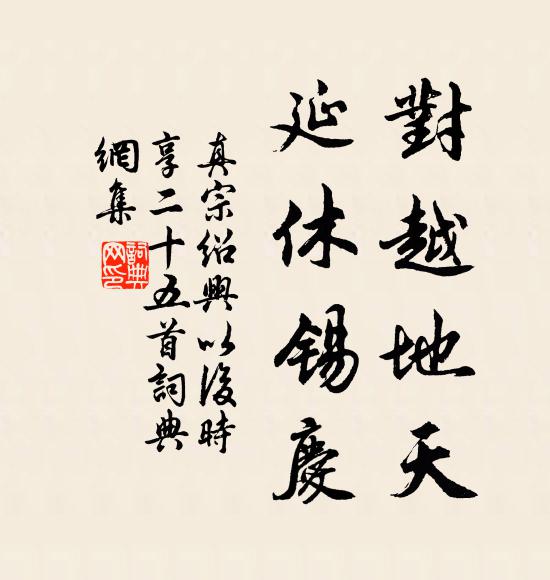 對越地天
延休锡慶
真宗绍興以後時
享二十五首詞典
網集
詞典網印